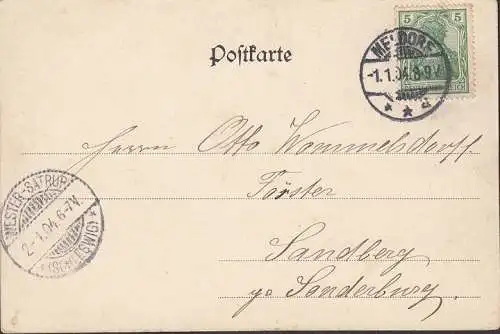 5 5
MELDORF
-1.1.04.8-9V.
* * a
Postkarte
Herrn Otto Wommelsdorff
Förster
WESTER-SATRUP
2.1.04.6-7V.
* (SCHLESWIG) *
Sandberg
po Sonderburg.